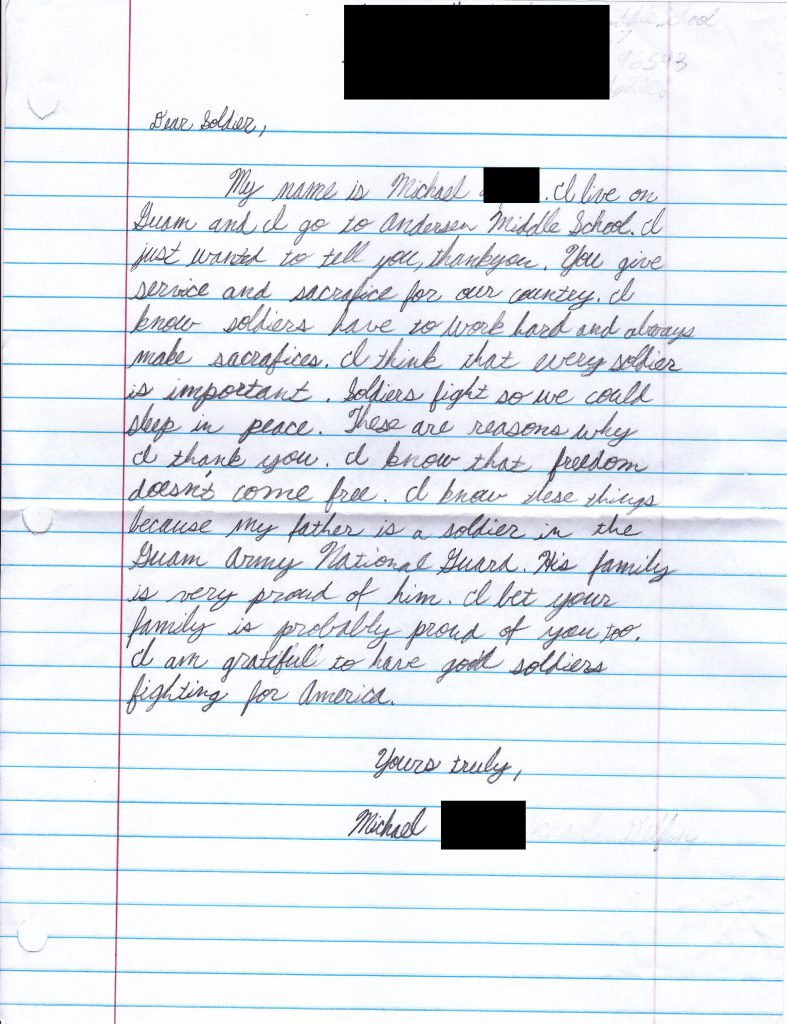 School
7
Dear Soldier,
My name is Michael . I live on
Guam and I go to Andersen Middle School. I
just wanted to tell you, thankyou. You give
service and sacrafice for our country. I
know soldiers have to work hard and always
make sacrafices. I think that every soldier
is important. Soldiers fight so we could
sleep in peace. These are reasons why
I thank you. I know that freedom
doesn't come free. I know these things
because my father is a soldier in the
Guam Army National Guard. His family
is very proud of him. I bet your
family is probably proud of you too.
I am grateful to have good soldiers
fighting for America.
Yours truly,
Michael